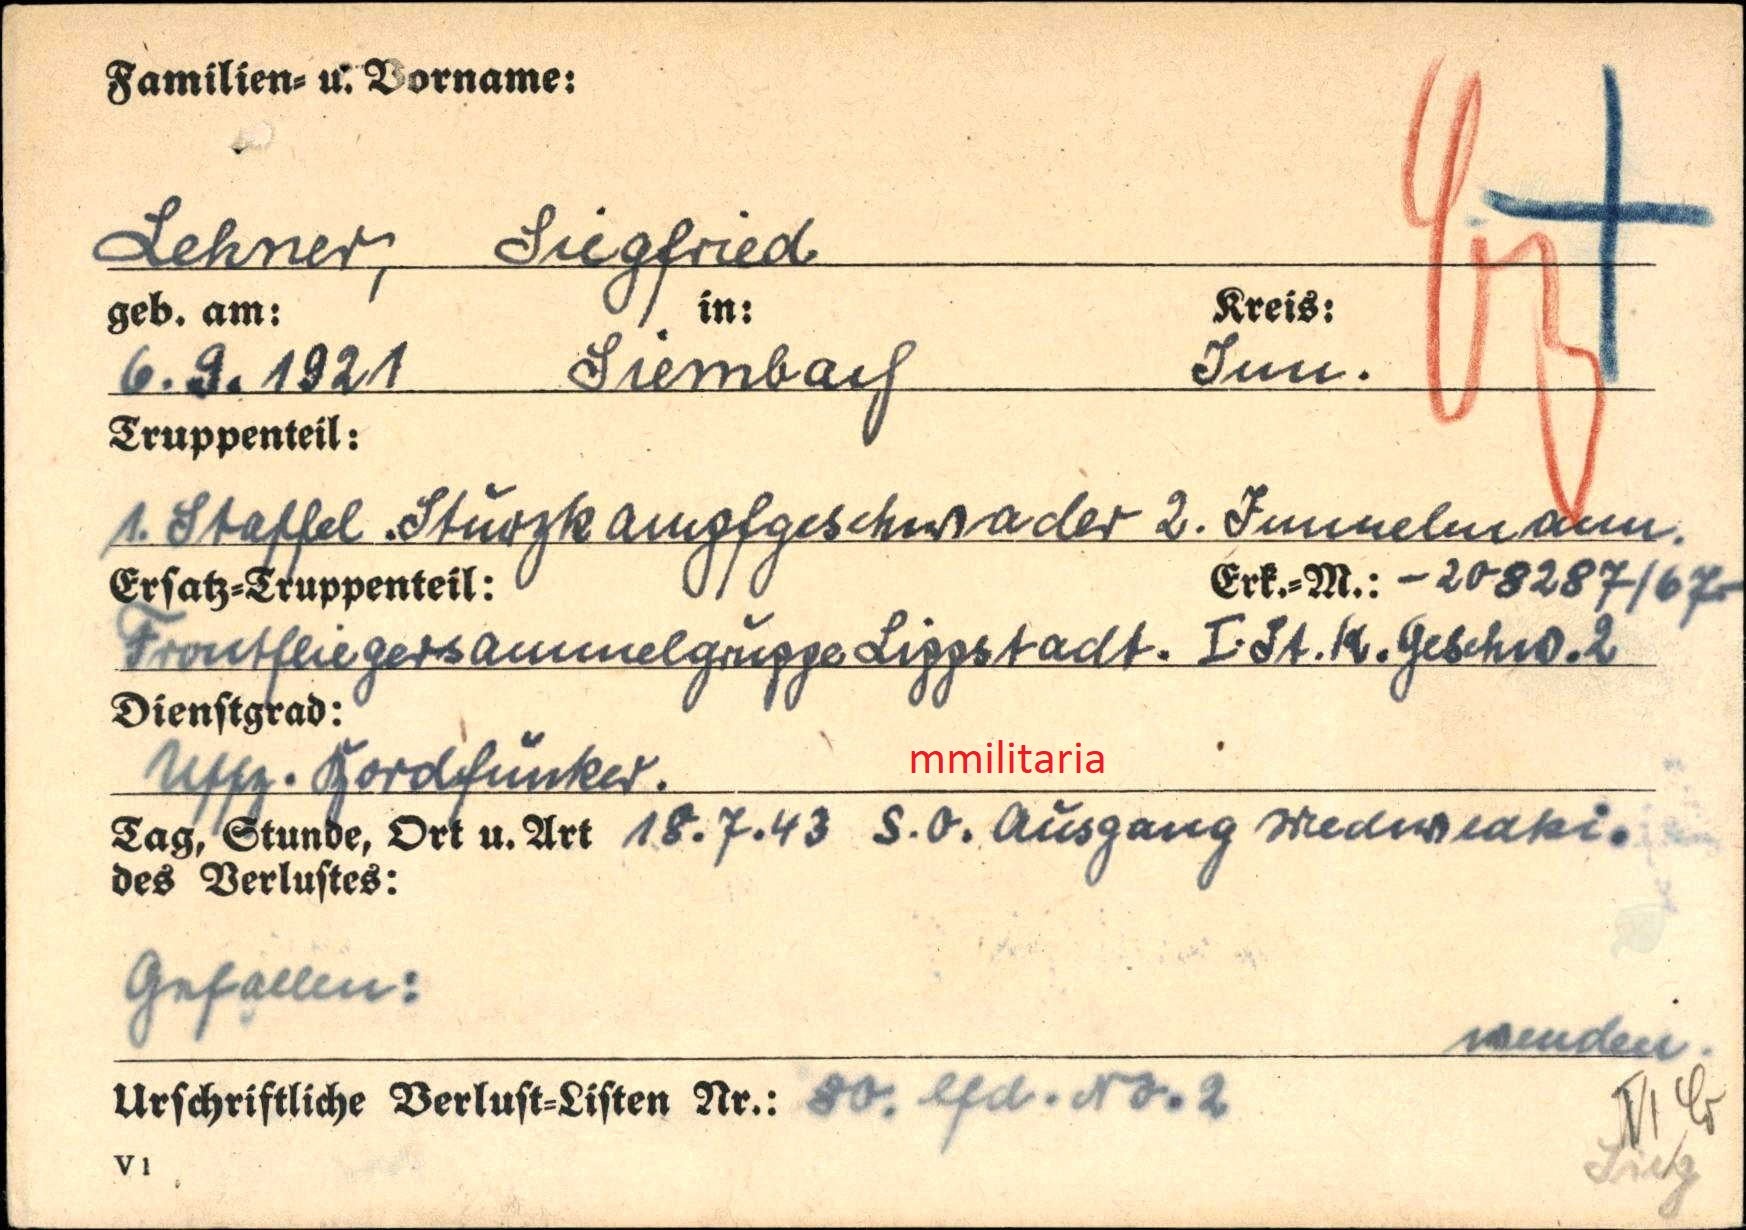 Familien- u. Vorname:
Lehner, Siegfried
geb. am: in: Kreis:
6. 9. 1921 Siembach Inn.
Truppenteil:
1. Staffel Sturzkampfgeschwader 2. Immelmann.
Ersatz-Truppenteil: Erk.-M.: -208287/67-
Frontfliegersammelgruppe Lippstadt. I. St. K. Geschw. 2
Dienstgrad:
Uffz. Bordfunker.
mmilitaria
Tag, Stunde, Ort u. Art 18.7.43 S.O. Ausgang
des Verlustes:
Gefallen:
wenden.
Urschriftliche Verlust-Listen Nr.: 80. lfd. Nr. 2
V 1